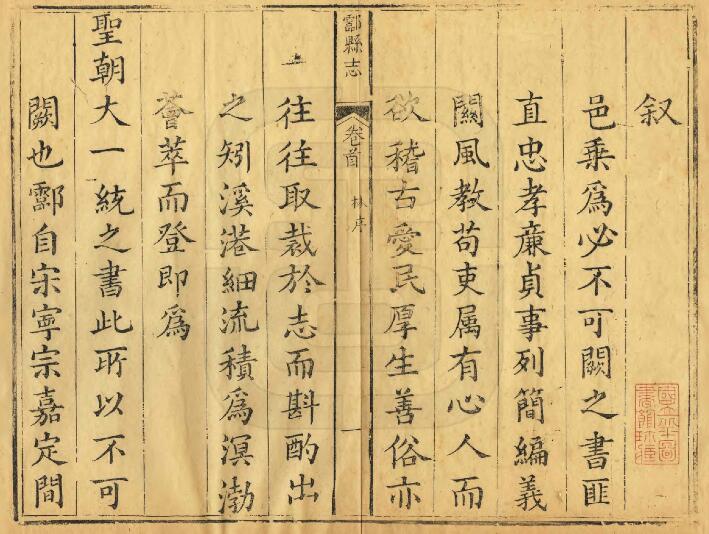 叙
邑乘爲必不可闕之書匪
直忠孝廉貞事列簡編義
關風教苟吏属有心人而
欲稽古愛民厚生善俗亦
酃縣志 卷首 林序 一
往往取裁於志而斟酌出
之矧溪港細流積爲溟渤
薈萃而登即爲
聖朝大一統之書此所以不可
闕也酃自宗寧宗嘉定間
國立北平圖
書館珍藏